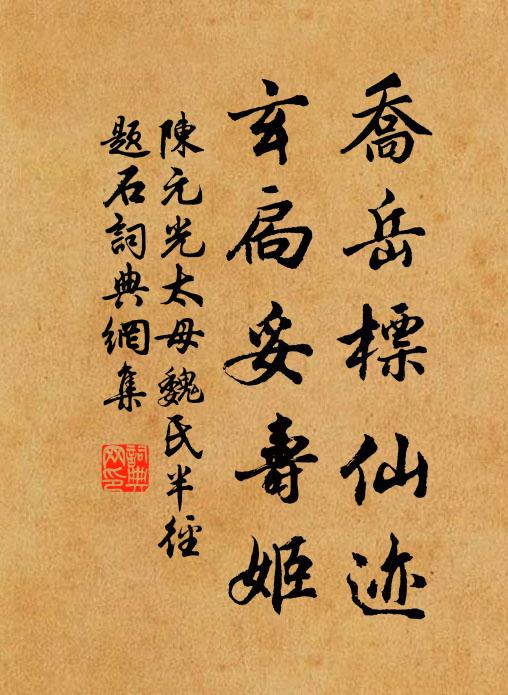 喬岳標仙迹
玄扃妥壽姬
陳元光太母魏氏半徑
題石詞典網集
詞典網印